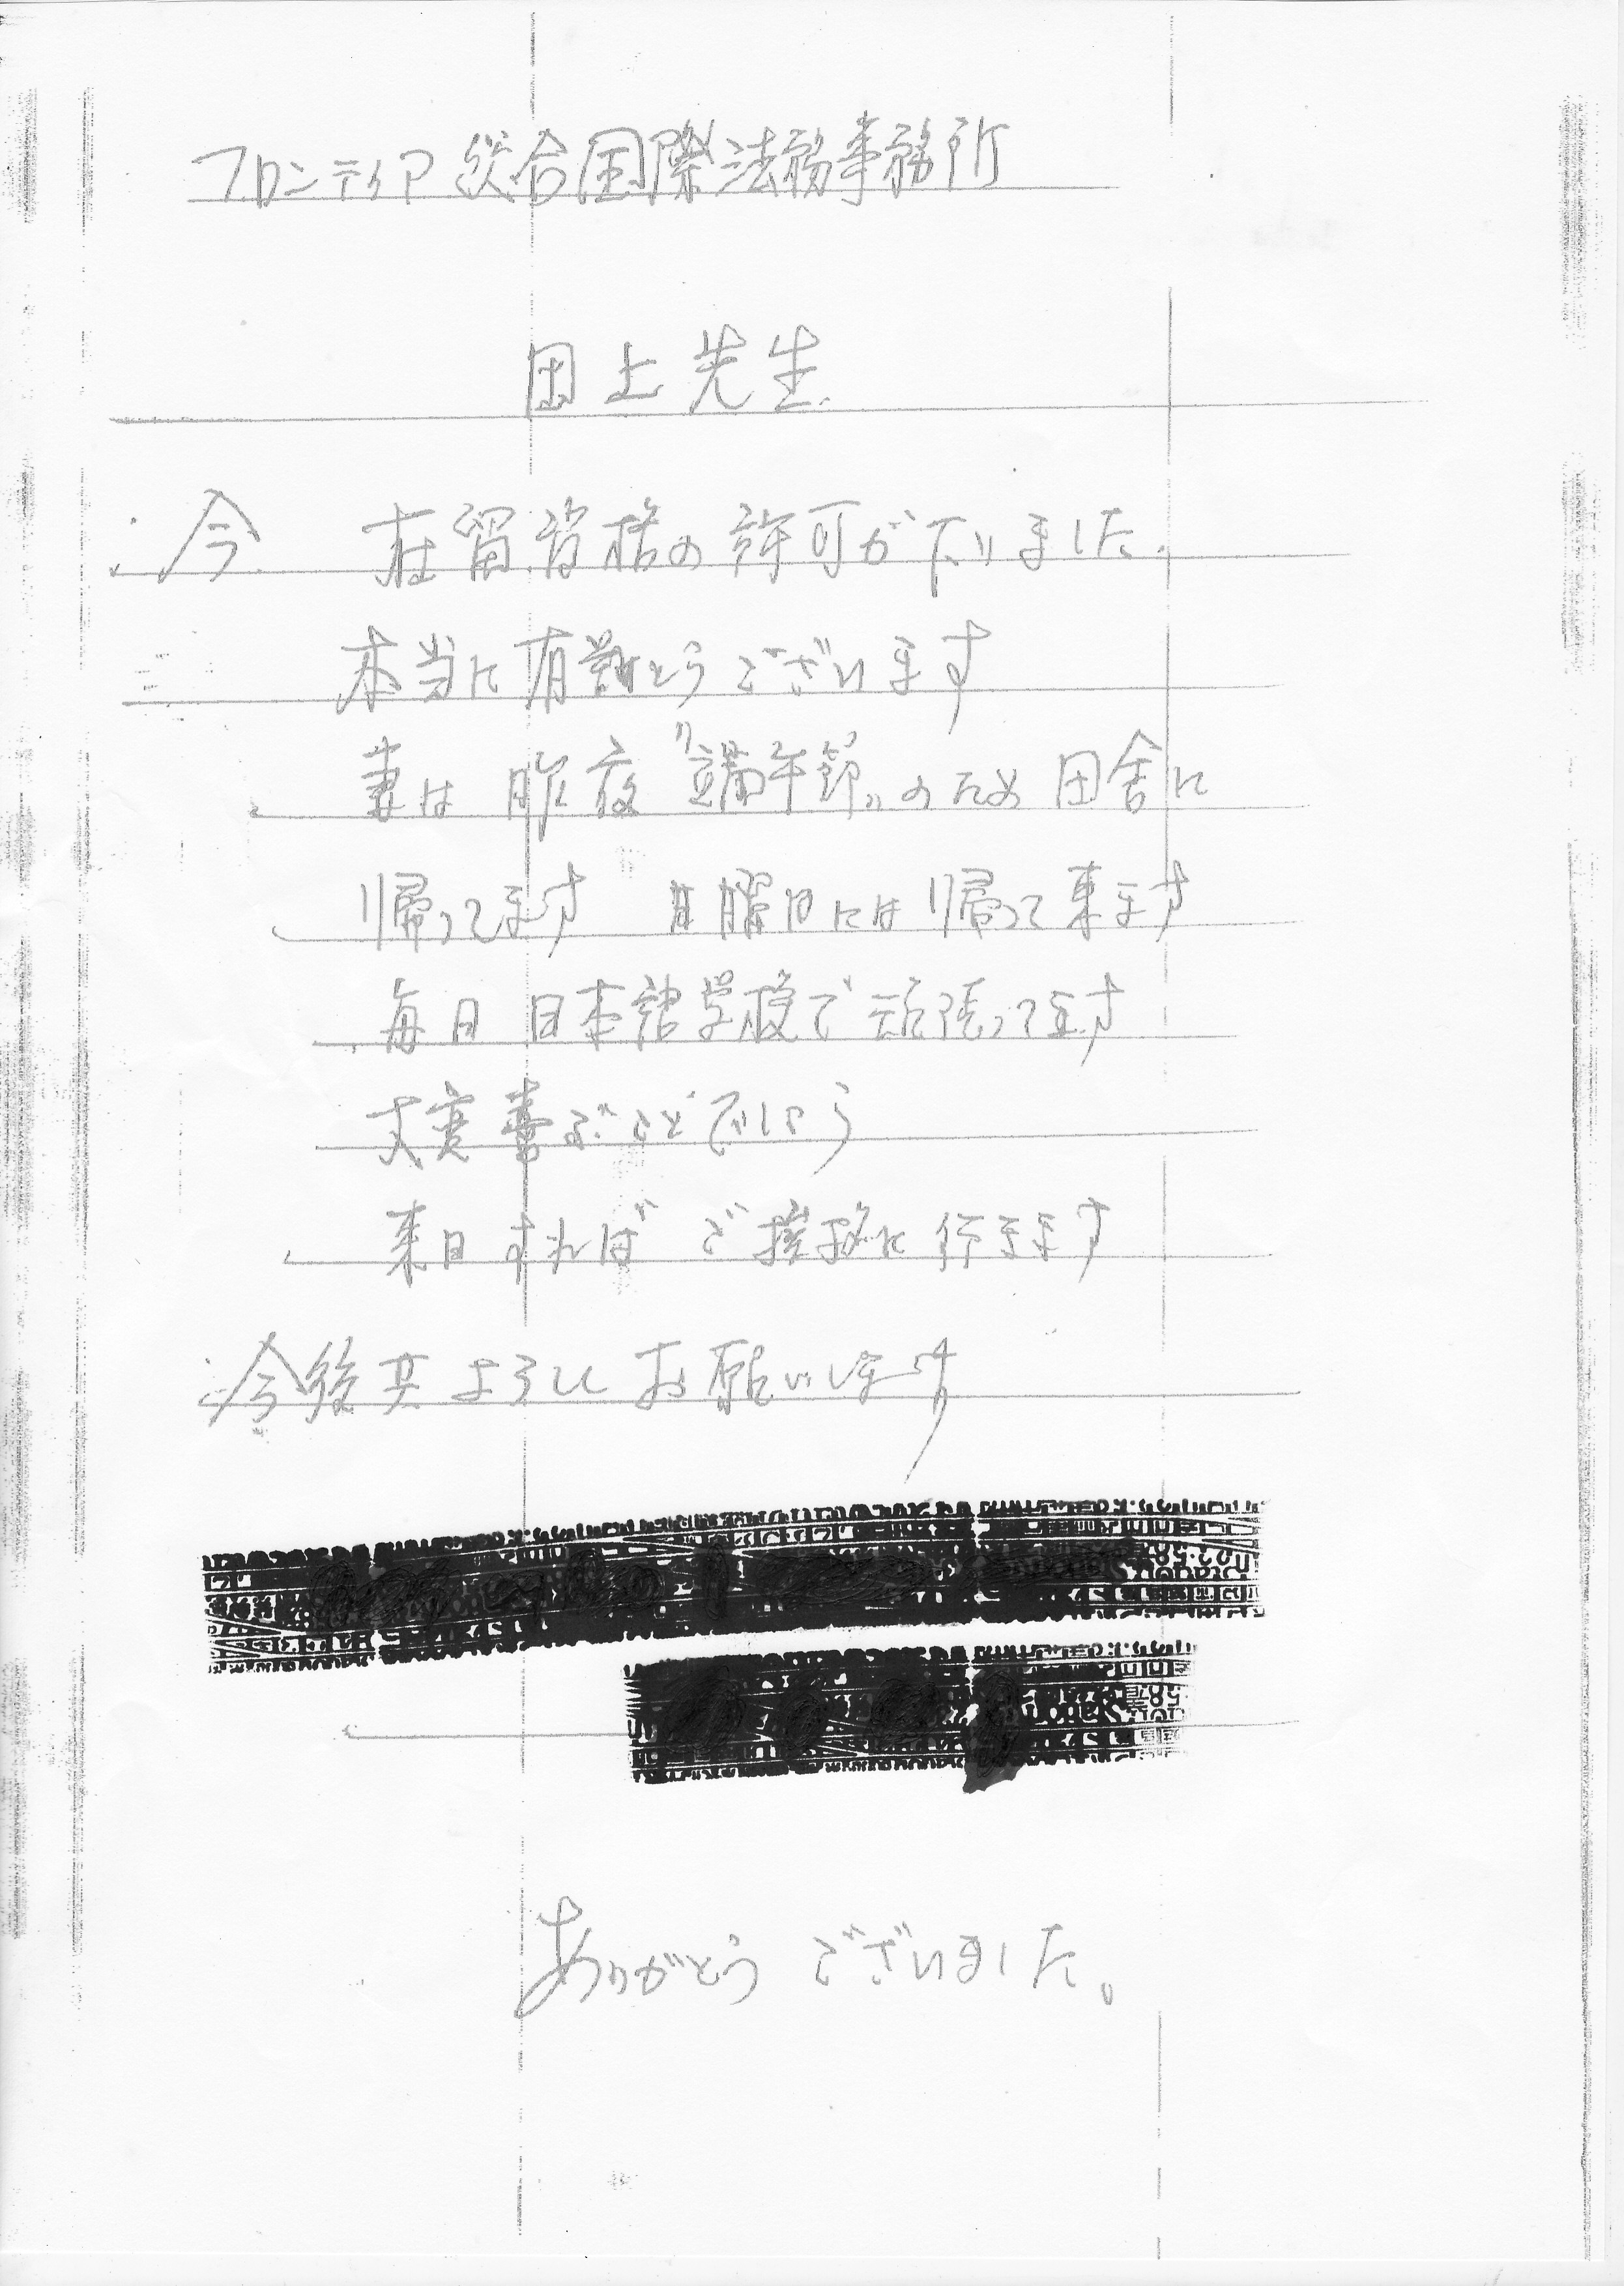 フロンティア総合国際法務事務所
田上先生
今 在留資格の許可が下りました.
本当に有難とうございます
妻は昨夜"端午節"のため田舎に
帰ってます 日曜日には帰って来ます
毎日 日本語学校で頑張って居ます
大変喜ぶことでしょう
来日すればご挨拶に行きます
今後共よろしくお願いします
ありがとうございました。